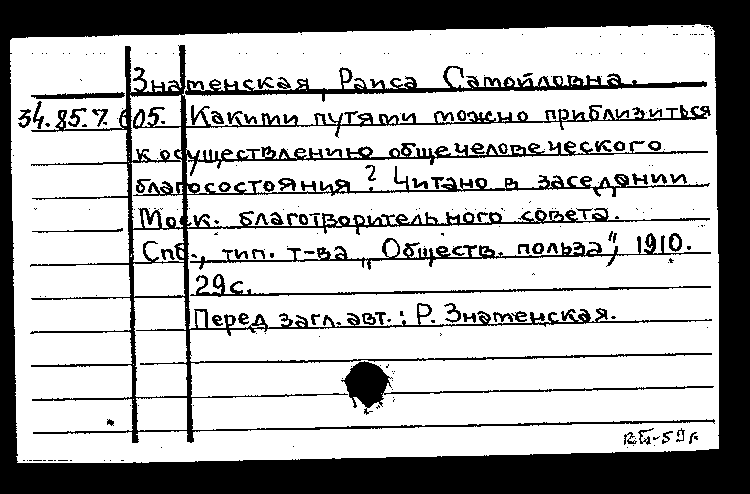 Знаменская, Раиса Самойловна.
34.85.7.605. Какими путями можно приблизиться
к осуществлению общечеловеческого
благосостояния? Читано в заседании
Моск. благотворительного совета.
Спб., тип. т-ва „Обществ. польза", 1910.
29с.
Перед загл. авт.: Р. Знаменская.